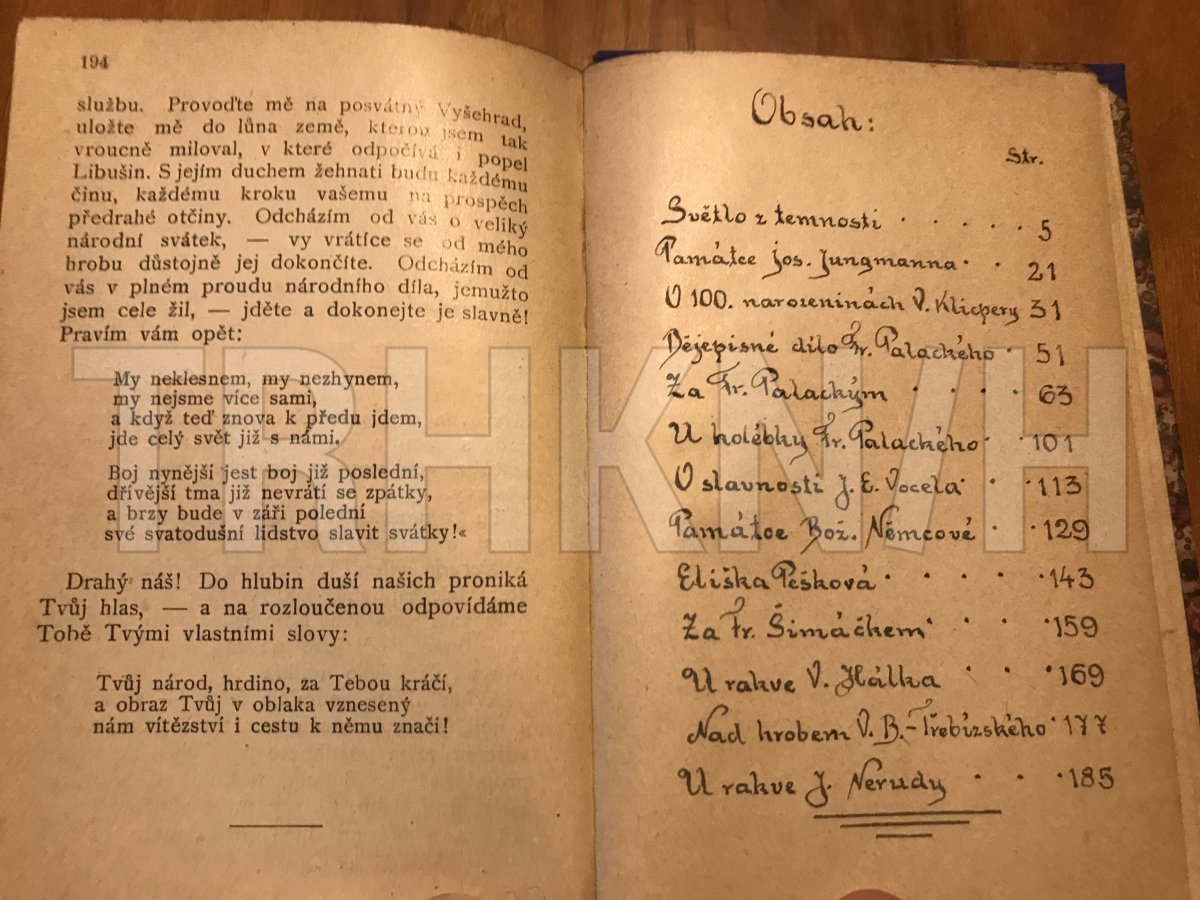 194
službu. Provoďte mě na posvátný Vyšehrad,
uložte mě do lůna země, kterou jsem tak
vroucně miloval, v které odpočívá i popel
Libušin. S jejím duchem žehnati budu každému
činu, každému kroku vašemu na prospěch
předrahé otčiny. Odcházím od vás o veliký
národní svátek, — vy vrátíce se od mého
hrobu důstojně jej dokončíte. Odcházím od
vás v plném proudu národního díla, jemužto
jsem cele žil, — jděte a dokonejte je slavně!
Pravím vám opět:
My neklesnem, my nezhynem,
my nejsme více sami,
a když teď znova k předu jdem,
jde celý svět již s námi.
Boj nynější jest boj již poslední,
dřívější tma již nevrátí se zpátky,
a brzy bude v záři polední
své svatodušní lidstvo slavit svátky!«
Drahý náš! Do hlubin duší našich proniká
Tvůj hlas, — a na rozloučenou odpovídáme
Tobě Tvými vlastními slovy:
Tvůj národ, hrdino, za Tebou kráčí,
a obraz Tvůj v oblaka vznesený
nám vítězství i cestu k němu značí!
Obsah:
Str.
Světlo z temnosti . . . . . 5
Památce Jos. Jungmanna . . 21
O 100. narozeninách V. Klicpery 31
Dějepisné dílo Fr. Palackého . 51
Za Fr. Palackým . . . . 63
U kolébky Fr. Palackého . . 101
O slavnosti J. E. Vocela . . . 113
Památce Bož. Němcové . . 129
Eliška Pešková . . . . . 143
Za Fr. Šimáčkem . . . . 159
U rakve V. Hálka . . . 169
Nad hrobem V. B.-Třebízského . 177
U rakve J. Nerudy . . . 185
TRHKNIH